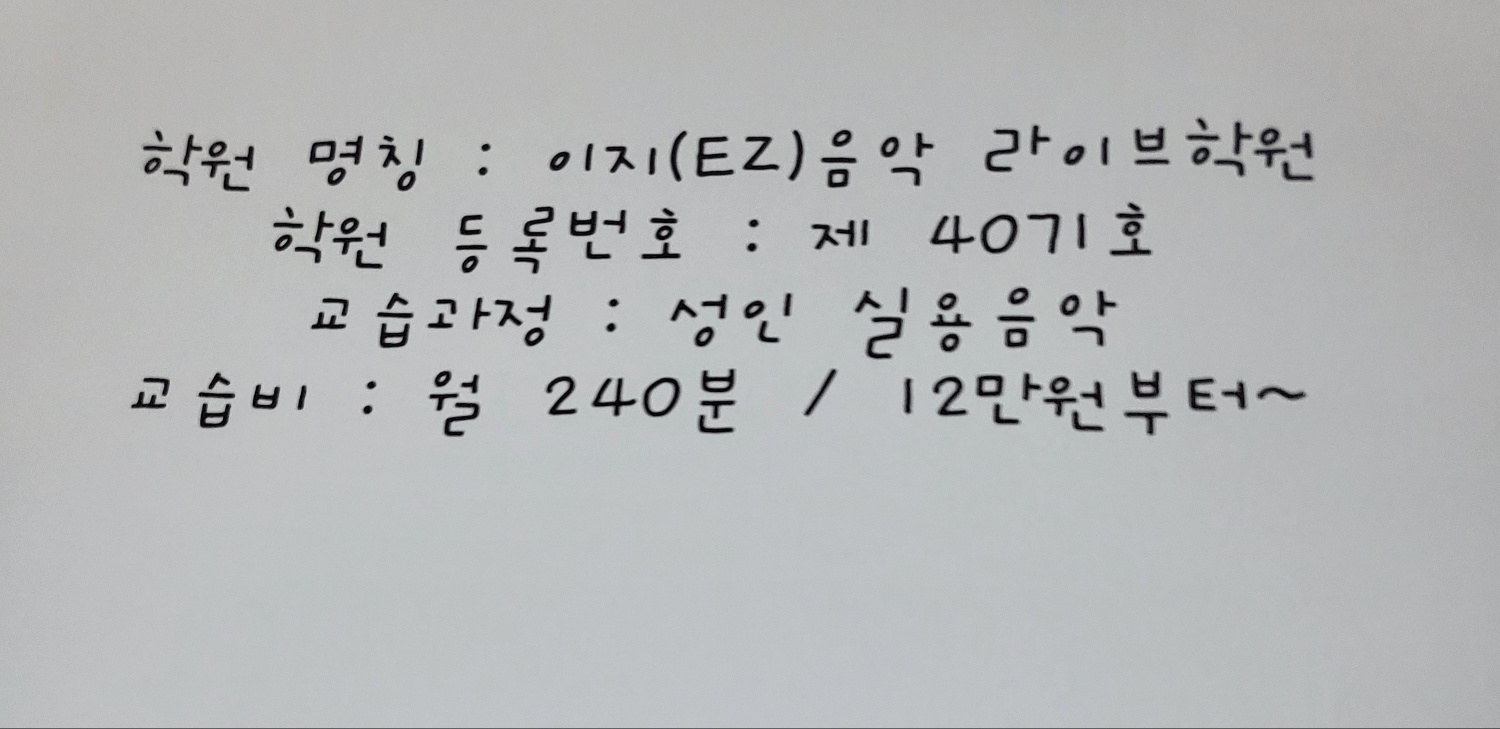 학원 명칭 : 이지(EZ)음악 라이브학원
학원 등록번호 : 제 4071호
교습과정 : 성인 실용음악
교습비 : 월 240분 / 12만원부터~